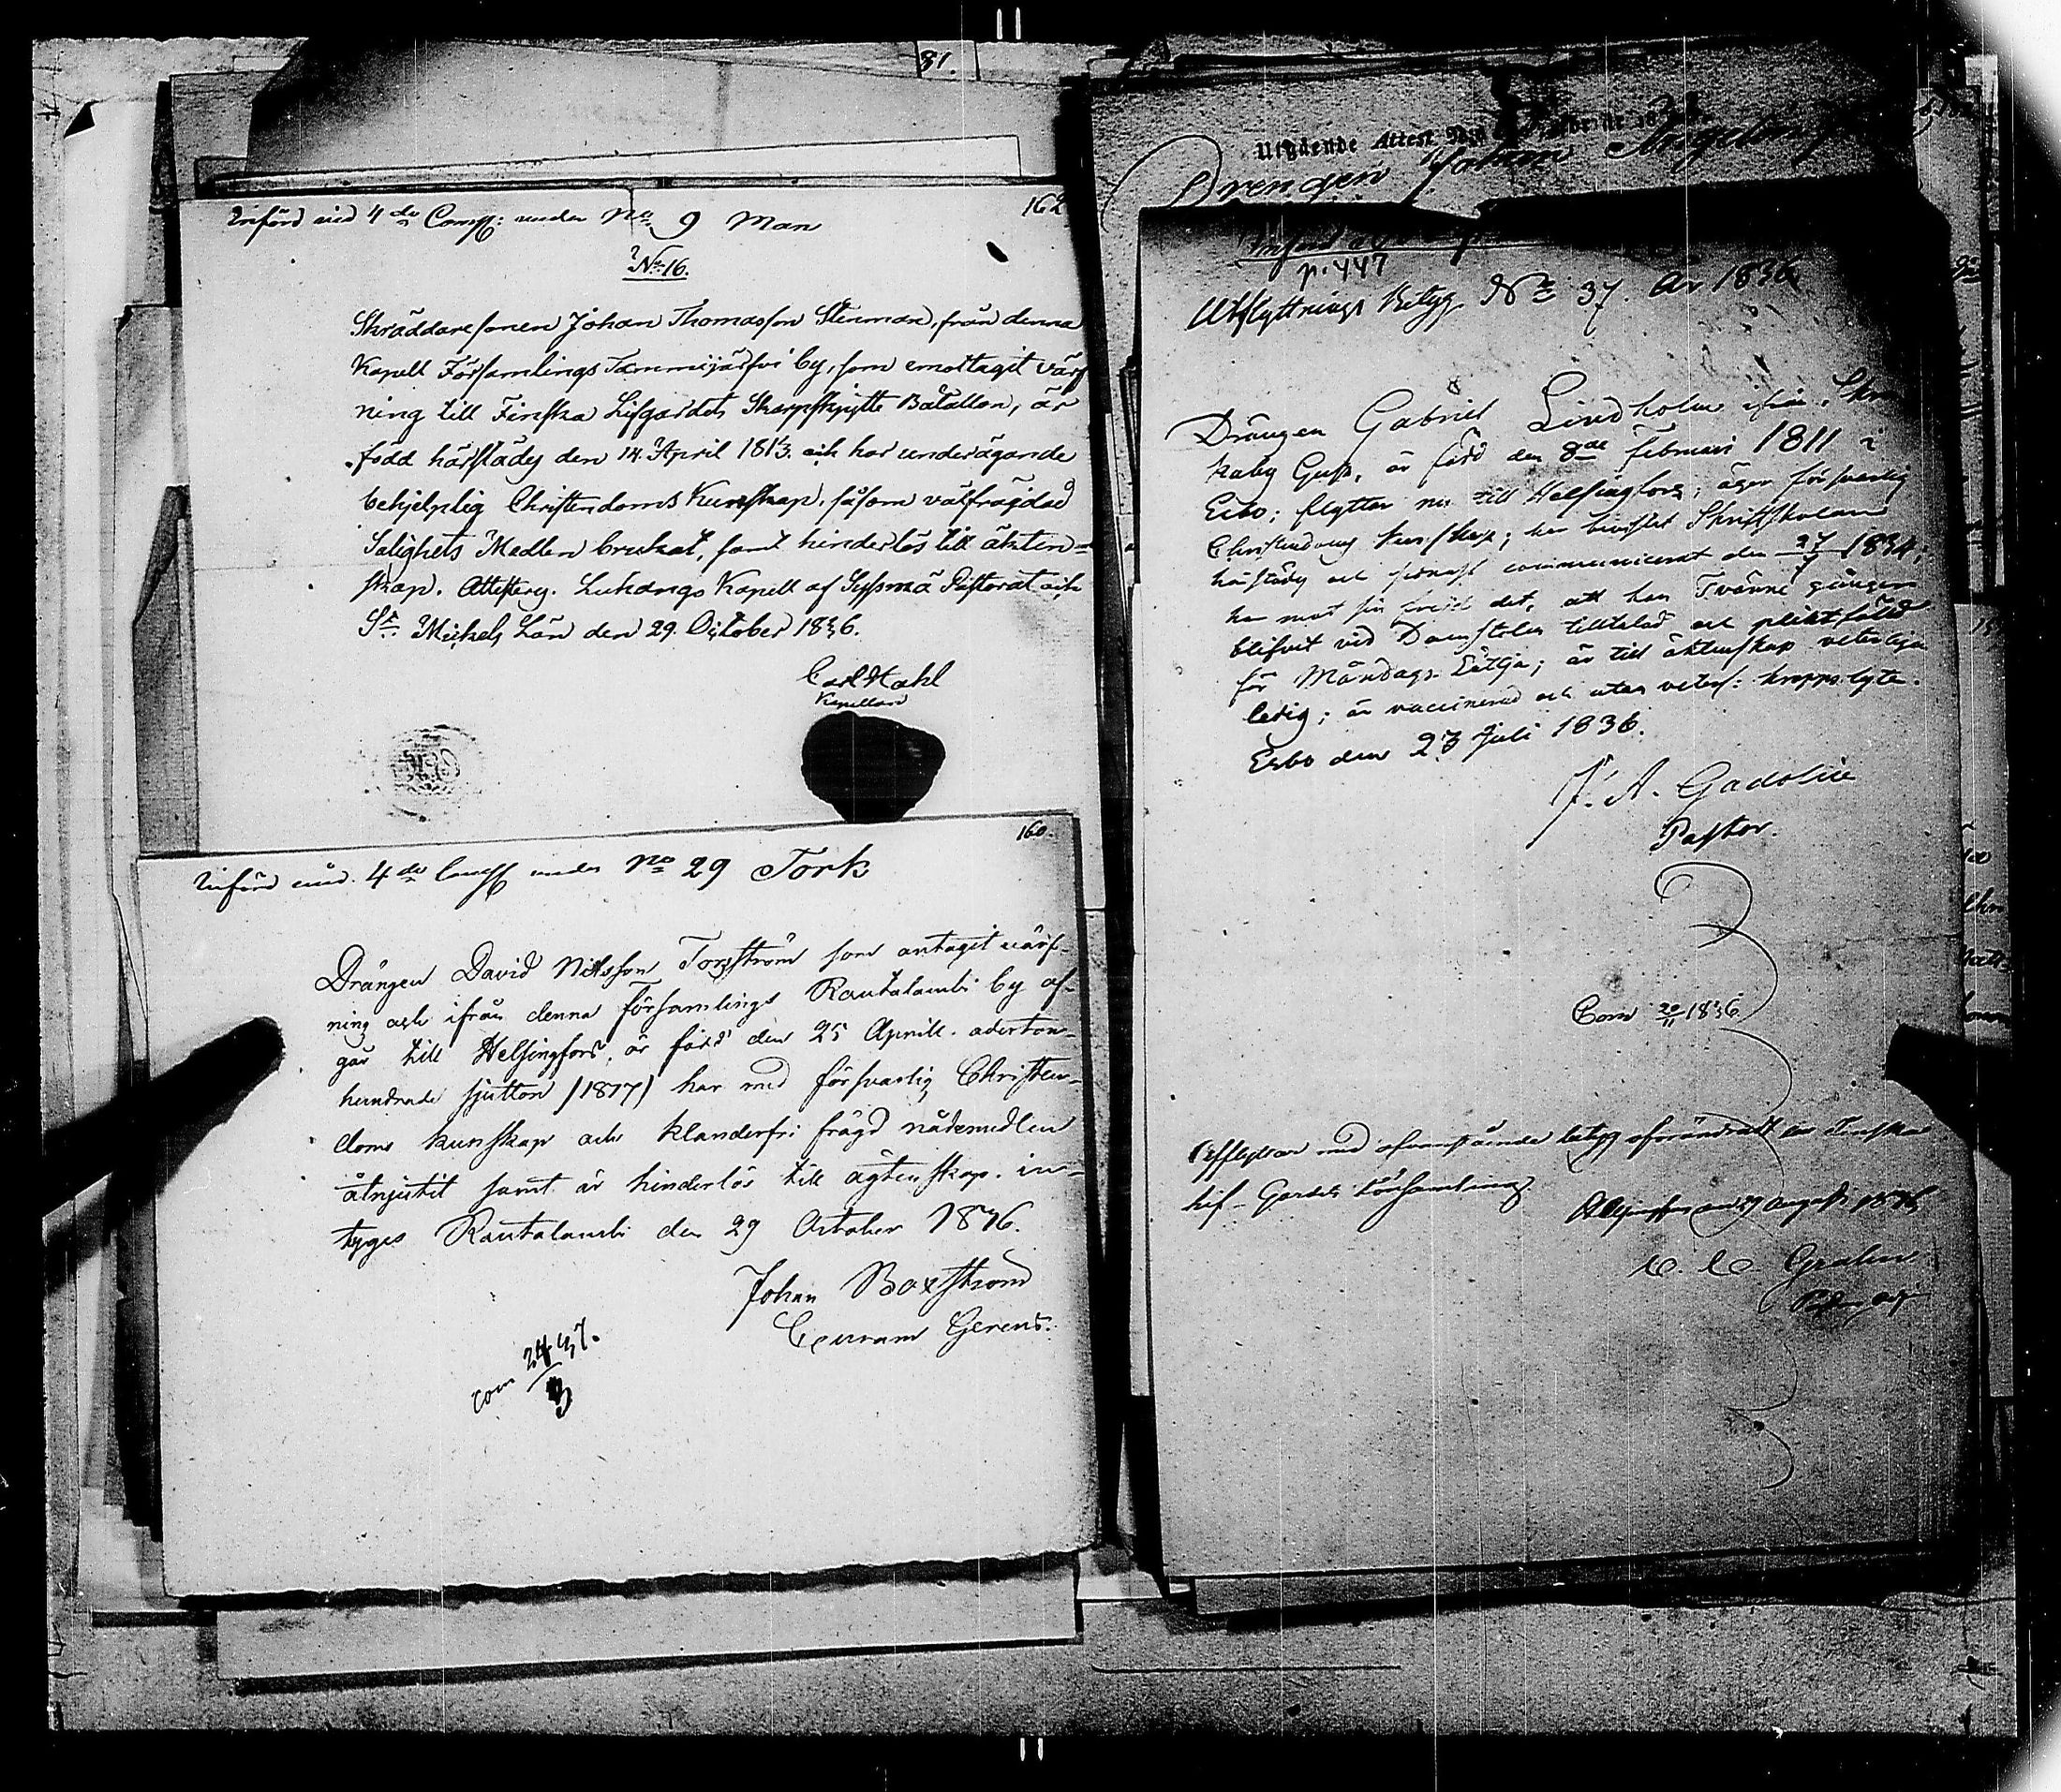 81.
162
Införd vid 4de Comp: under No 9 Man
No 16.
Skräddaresonen Johan Thomasson Stenman, från denna
Kapell Församlings Tammijärfvi by, som emottagit värf
ning till Finska Lifgardets Skarpskytte Batallon, är
född härstädes den 14. April 1813. och har underägande
behjelplig Christendoms Kunskap, såsom välfrägdad
Salighets Medlen brukat, samt hinderlös till äkten-
skap. Attesteras. Luhango Kapell af Sysmä Pastorat och
St Michels Län den 29. October 1836.
Carl Hahl
Kapellan
160.
Införd vid 4de Comp under No 29 Tork
Drängen David Nilsson Torsström som antagit värf-
ning och ifrån denna församlings Rautalambi by af-
går till Helsingfors, är född den 25 Aprill aderton-
hundrade sjutton (1817) har med försvarlig Christen-
doms kunskap och klanderfri frägd nådemedlen
åtnjutit samt är hinderlös till ägtenskap. in-
tygas Rautalambi den 29 October 1836.
Johan Boxström
Com 24/3 37.
Utgående Attest
Drengen Johan
p. 447
Utflyttnings Betyg No 37. År 1836
Drängen Gabriel Lindholm ifrån
Gård, är född den 8de Februari 1811 i
Esbo; flyttar nu till Helsingfors; äger försvarlig
Christendoms kunskap; har bevistat Skriftskolan
härstädes och senast communicerat den 27/7 1834;
har mot sin frejd det, att han Tvänne gånger
blifvit vid Domstolen tilltalad och pliktfälld
för Måndags Lättja; är till äktenskap veterligen
ledig; är vaccinerad och utan veterl: kroppslyte.
Esbo den 23 Juli 1836.
J. A. Gadolin
Pastor.
Com 20/11 1836
Afflyttar med ofvanstående betyg oförändradt till Finska
Lif-Gardets Församling.
Helsingfors den 27 Augusti 1836